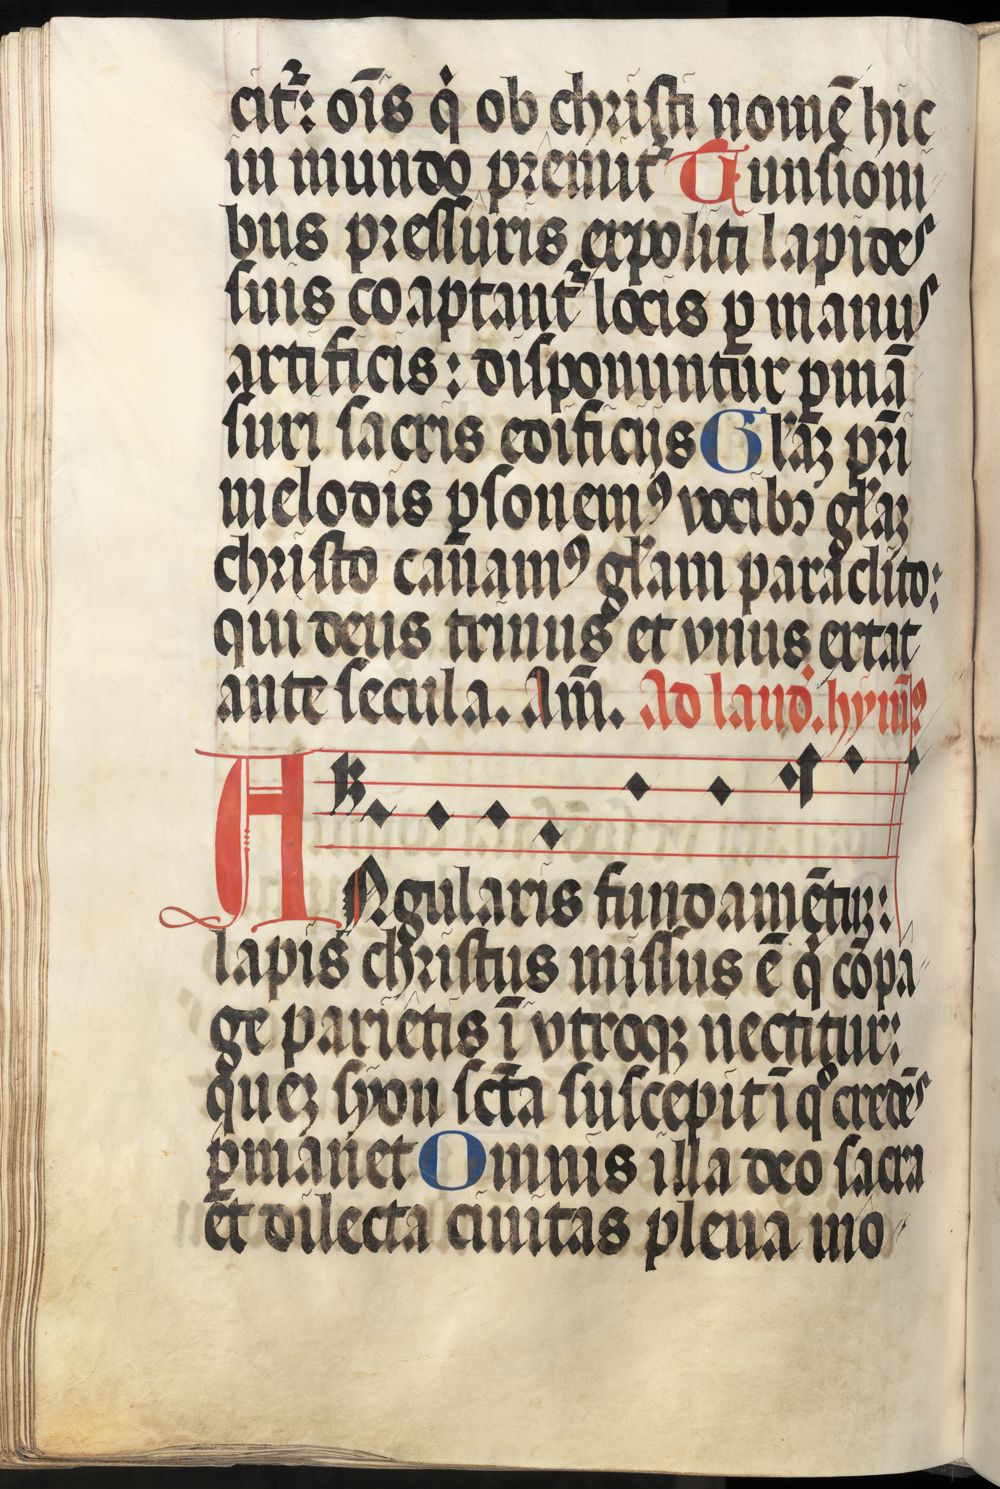 citʳ: oı̄s qͥ ob christi nomē hic
in mundo premitʳ Tunsioni
bus pressuris expoliti lapides
suis coaptantʳ locis ꝑ manus
artificis: disponuntur ꝑmā
suri sacris edificijs Gl̄aꝫ pr̄i
melodis ꝑsonemꝰ vocibꝫ gl̄aꝫ
christo canamꝰ gl̄am paraclito:
qui deus trinus et vnus extat
ante secula. Am̄. Ad laud. hymꝰ
ANgularis fundamētuꝫ:
lapis christus missus ē qͥ cōpa
ge parietis ī vtroqꝫ nectitur:
queꝫ syon sct̄a suscepit ī qͦ credēs
ꝑmanet Omnis illa deo sacra
et dilecta ciuitas plena mo